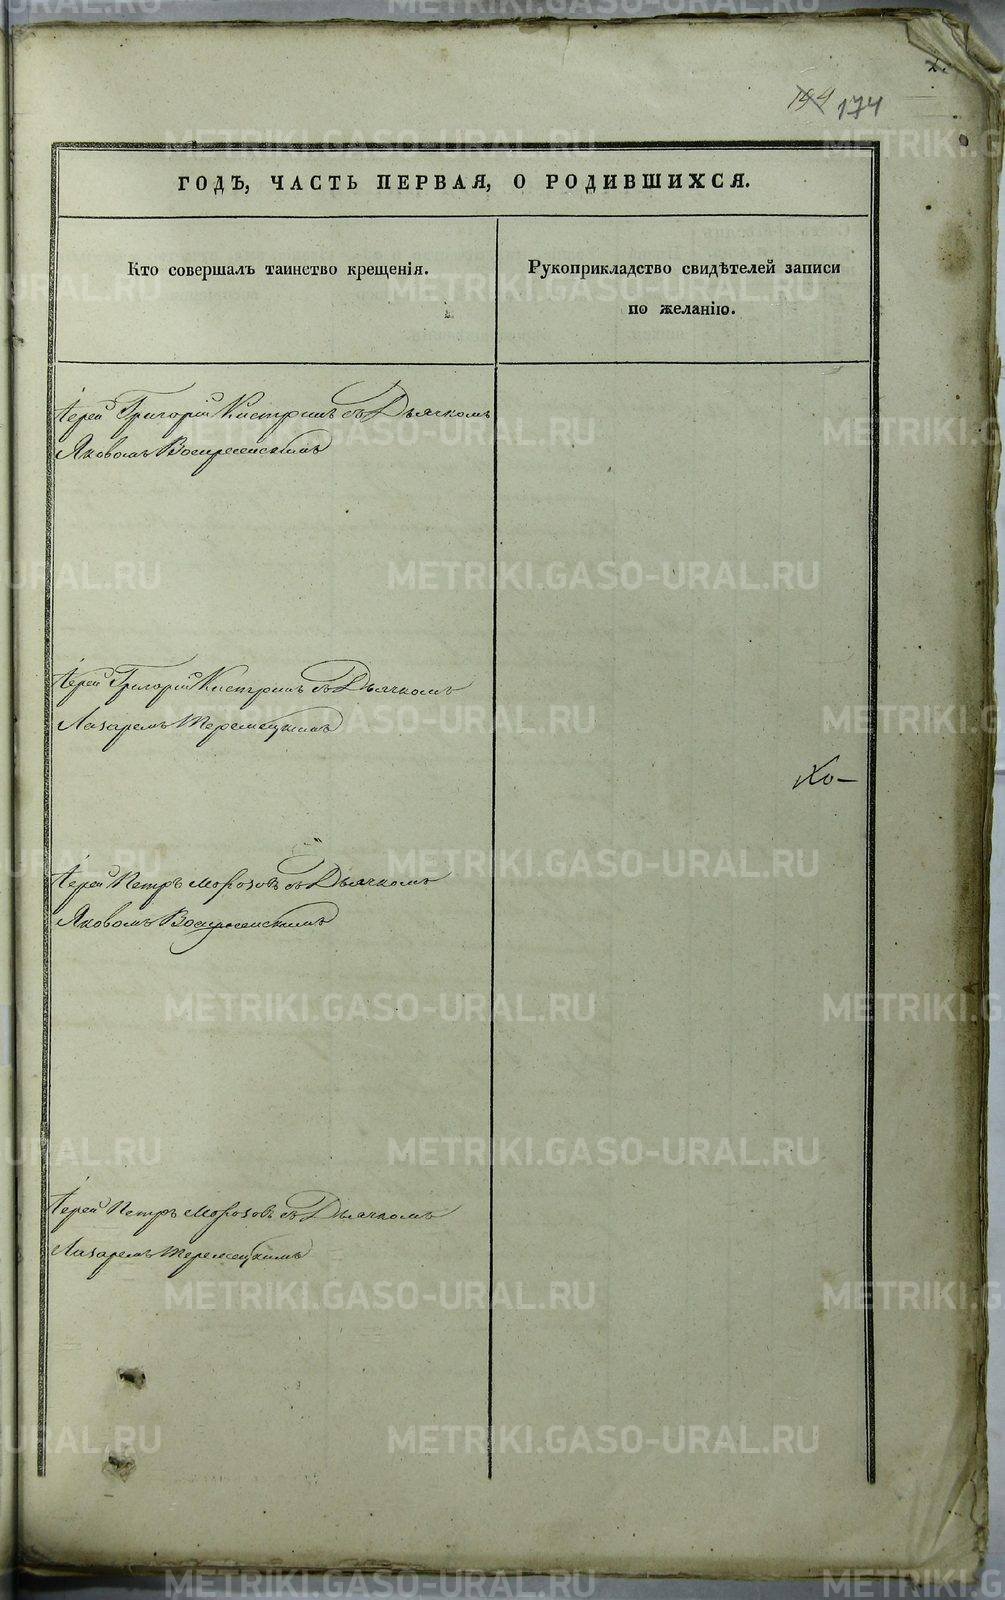 174
ГОДѢ, ЧАСТЬ ПЕРВАЯ, О РОДИВШИХСЯ.
Кто совершалъ таинство крещенія.
Рукоприкладство свидѣтелей записи
по желанію.
Іерей Григорій Кистринъ съ Дьячкомъ
Яковомъ Воскресенскимъ
Іерей Григорій Кистринъ съ Дьячкомъ
Лазаремъ Теремецкимъ
Хо-
Іерей Петръ Морозовъ съ Дьячкомъ
Яковомъ Воскресенскимъ
Іерей Петръ Морозовъ съ Дьячкомъ
Лазаремъ Теремецкимъ
METRIKI.GASO-URAL.RU